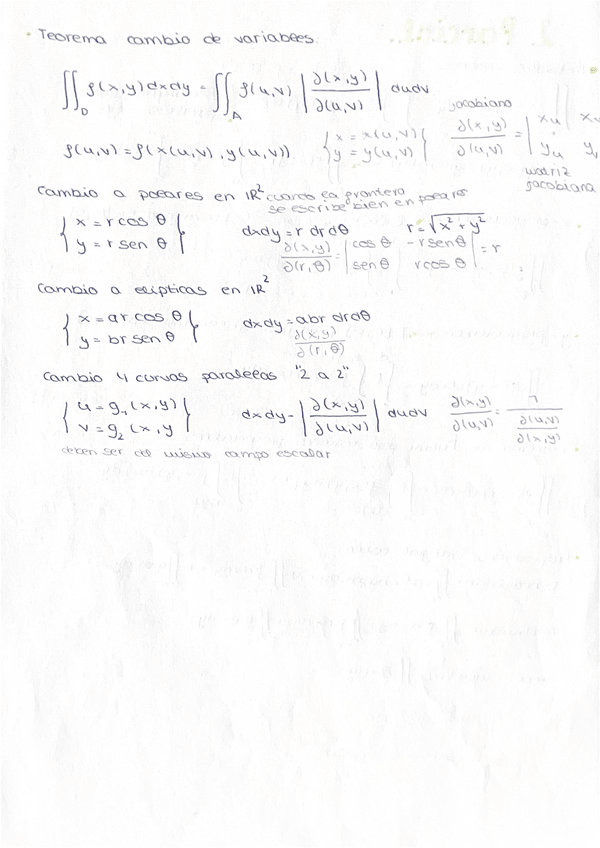 • Teorema cambio de variables.
∬_D f(x,y) dx dy = ∬_A f(u,v) |∂(x,y)/∂(u,v)| du dv
jacobiano
f(u,v) = f(x(u,v), y(u,v)) { x = x(u,v) y = y(u,v) } ∂(x,y)/∂(u,v) = | x_u x_v y_u y_v
matriz jacobiana
Cambio a polares en IR² cuando la frontera se escribe bien en polares
{ x = r cos θ y = r sen θ } dx dy = r dr dθ r = √(x² + y²)
∂(x,y)/∂(r,θ) = | cos θ -r sen θ sen θ r cos θ | = r
Cambio a elípticas en IR²
{ x = ar cos θ y = br sen θ } dx dy = abr dr dθ
∂(x,y)/∂(r,θ)
Cambio 4 curvas paralelas "2 a 2"
{ u = g₁(x,y) v = g₂(x,y } dx dy = |∂(x,y)/∂(u,v)| du dv ∂(x,y)/∂(u,v) = 1/(∂(u,v)/∂(x,y))
deben ser del mismo campo escalar